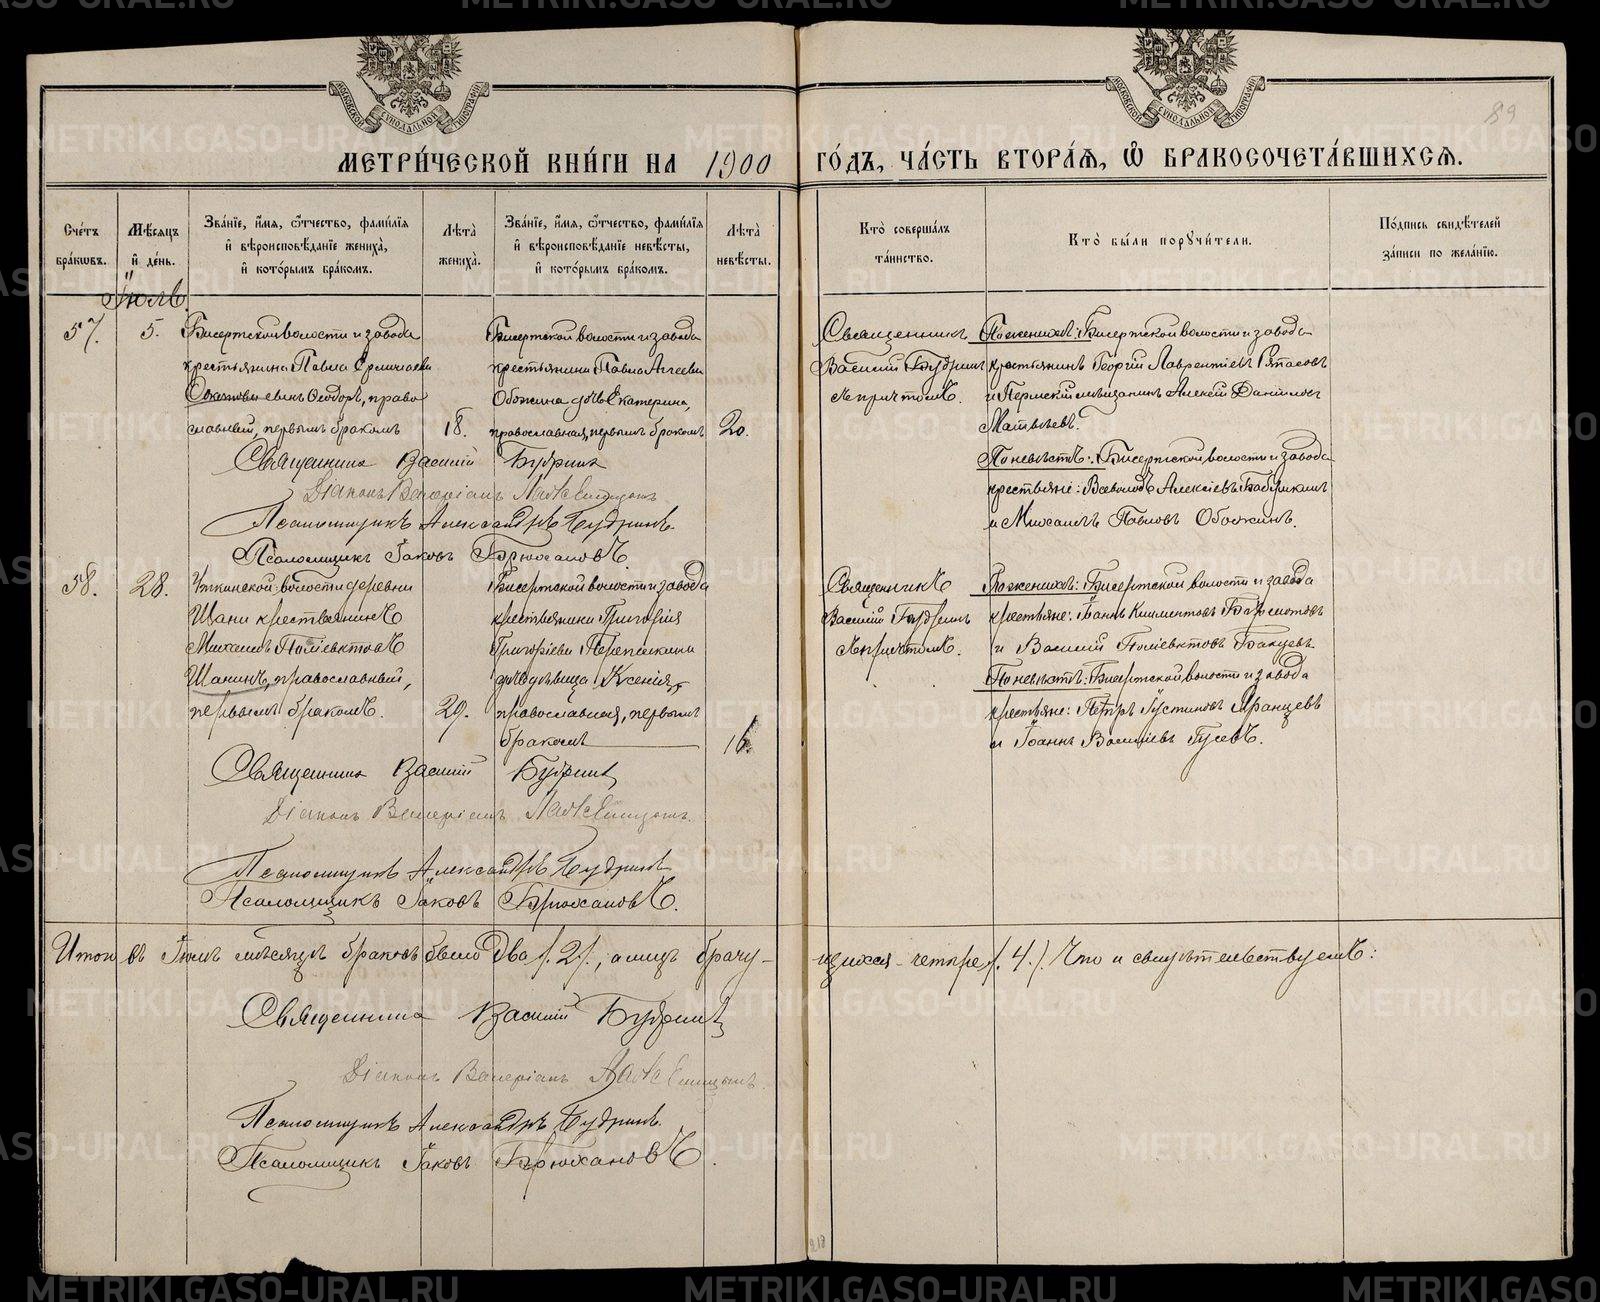 МЕТРИ́ЧЕСКОЙ КНИ́ГИ НА 1900 ГО́ДЪ, ЧА́СТЬ ВТОРА́Ѧ, Ѽ БРАКОСОЧЕТА́ВШИХСѦ.
89
Счетъ браковъ.
Мѣсяцъ и день.
Званїе, имя, отчество, фамилїя и вѣроисповѣданїе жениха, и которымъ бракомъ.
Лѣта жениха.
Званїе, имя, отчество, фамилїя и вѣроисповѣданїе невѣсты, и которымъ бракомъ.
Лѣта невѣсты.
Кто совершалъ таинство.
Кто были поручители.
Подпись свидѣтелей записи по желанїю.
Іюль
57.
5.
Бисертской волости и завода
крестьянина Павла
сынъ Ѳеодоръ, право
славный, первымъ бракомъ
18.
Бисертской волости и завода
крестьянина Павла
Обожина дочь Екатерина,
православная, первымъ бракомъ
20.
Священникъ
Василій Будринъ
съ причтомъ.
По женихѣ: Бисертской волости и завода
крестьянинъ Георгій Лаврентіевъ
и Пермскій мѣщанинъ Алексій Даніиловъ
Матвѣевъ.
По невѣстѣ: Бисертской волости и завода
крестьяне: Всеволодъ Алексіевъ Бабушкинъ
и Михаилъ Павловъ Обожинъ.
Священникъ Василій Будринъ
Діаконъ Валеріанъ
Псаломщикъ Александръ Будринъ
Псаломщикъ Іаковъ Брюхановъ.
58.
28.
Уткинской волости деревни
Шани крестьянинъ
Михаилъ Поліевктовъ
Шанинъ, православный,
первымъ бракомъ.
29.
Бисертской волости и завода
крестьянина Григорія
Григоріева
дѣвица Ксенія,
православная, первымъ
бракомъ
16.
Священникъ
Василій Будринъ
съ причтомъ.
По женихѣ: Бисертской волости и завода
крестьяне: Іоаннъ Климентовъ
и Василій Поліевктовъ
По невѣстѣ: Бисертской волости и завода
крестьяне: Петръ Іустиновъ
и Іоаннъ Василіевъ Гусевъ.
Священникъ Василій Будринъ
Діаконъ Валеріанъ
Псаломщикъ Александръ Будринъ
Псаломщикъ Іаковъ Брюхановъ.
Итого въ Іюлѣ мѣсяцѣ браковъ было два /.2/., а лицъ брачу-
щихся - четыре /.4./. Что и свидѣтельствуемъ:
Священникъ Василій Будринъ
Діаконъ Валеріанъ
Псаломщикъ Александръ Будринъ.
Псаломщикъ Іаковъ Брюхановъ.
METRIKI.GASO-URAL.RU